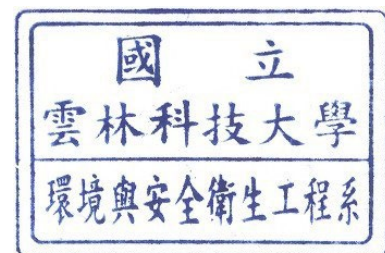 國立
雲林科技大學
環境與安全衛生工程系